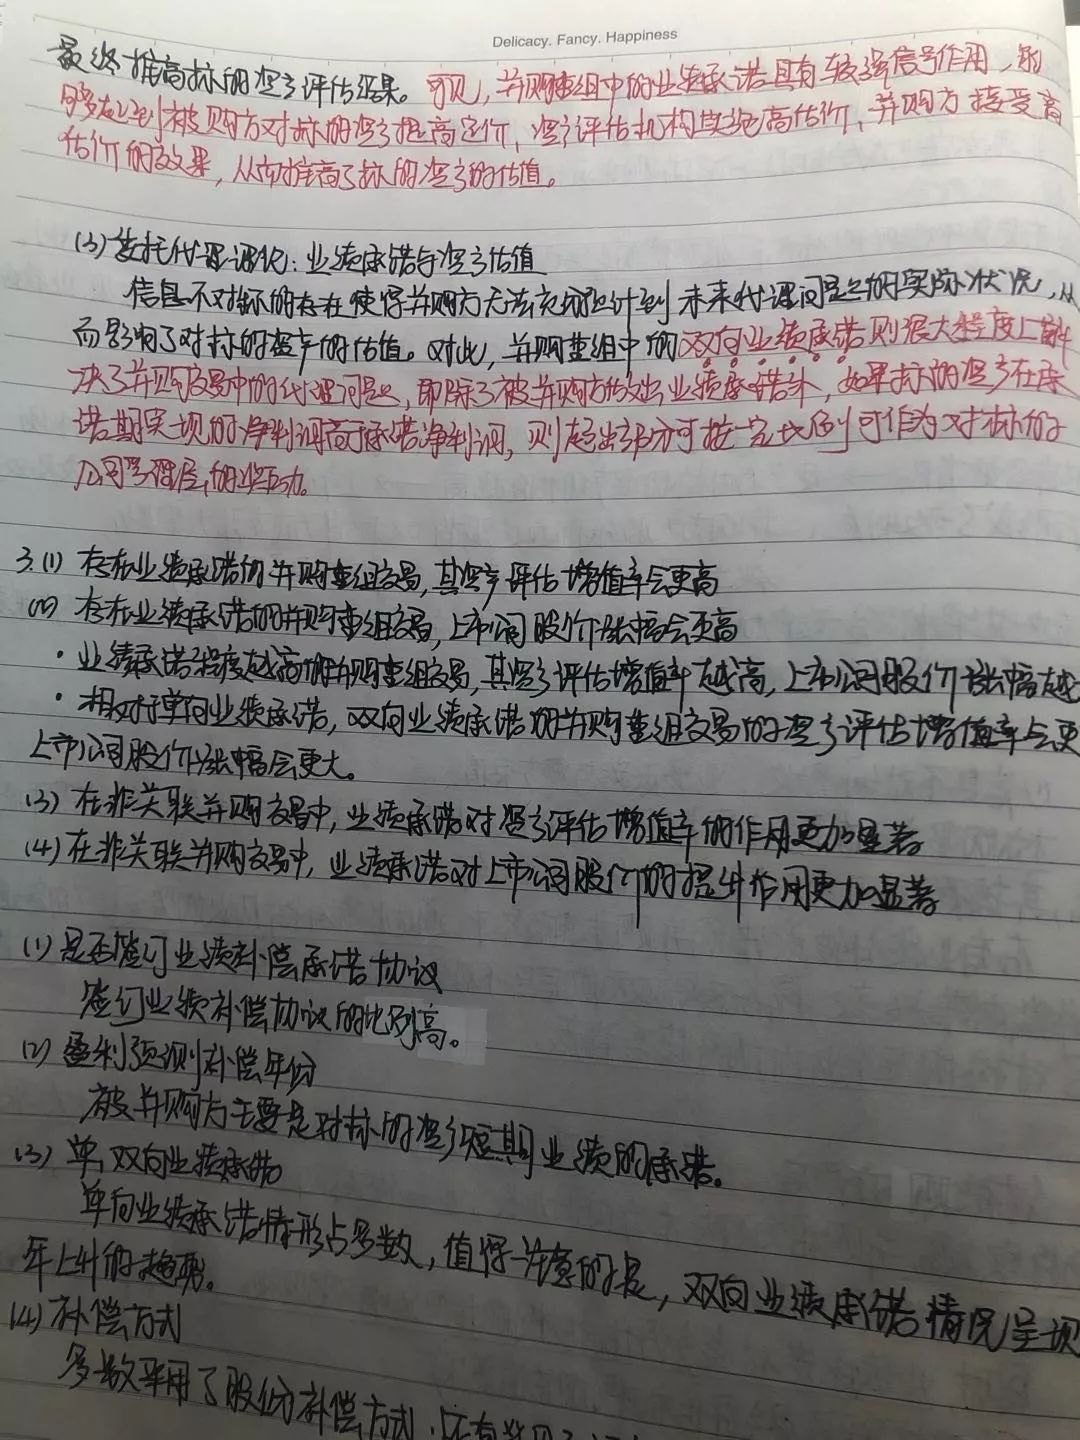 Delicacy. Fancy. Happiness
最终推高标的资产评估结果。可见，并购重组中的业绩承诺具有较强信号作用，能
够起到被购方对标的资产提高定价，资产评估机构实施高估价，并购方接受高
估价的效果，从而推高了标的资产的估值。
(3)委托代理理论：业绩承诺与资产估值
信息不对称的存在使得并购方无法充预计到未来代理问题的实际状况，从
而影响了对标的资产的估值。对此，并购重组中的双向业绩承诺则很大程度上解
决了并购交易中的代理问题，即除了被并购方做出业绩承诺外，如果标的资产在承
诺期实现的净利润高于承诺净利润，则超出部分可按一定比例可作为对标的
公司管理层的奖励。
3.(1) 存在业绩承诺的并购重组交易，其资产评估增值率会更高
(2) 存在业绩承诺的并购重组交易，上市公司股价涨幅会更高
·业绩承诺程度越高的并购重组交易，其资产评估增值率越高，上市公司股价涨幅越
·相对于单向业绩承诺，双向业绩承诺的并购重组交易的资产评估增值率会更
上市公司股价涨幅会更大。
(3) 在非关联并购交易中，业绩承诺对资产评估增值率的作用更加显著
(4) 在非关联并购交易中，业绩承诺对上市公司股价的提升作用更加显著
(1) 是否签订业绩补偿承诺协议
签订业绩补偿协议的比例高。
(2) 盈利预测补偿年份
被并购方主要是对标的资产短期业绩的承诺。
(3) 单,双向业绩承诺
单向业绩承诺情形占多数，值得注意的是，双向业绩承诺情况呈现
年上升的趋势。
(4) 补偿方式
多数采用了股份补偿方式，还有